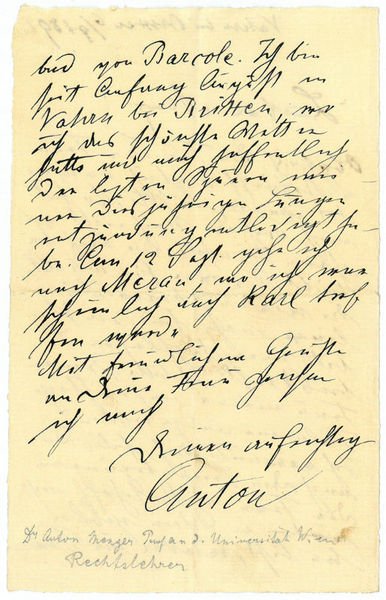 bad von Barcole. Ich bin
seit Anfang August in
Vahrn bei Brixen, wo
ich das schönste Wetter
hatte und mich hoffentlich
der letzten Spuren mei
ner diesjährigen Lungen
entzündung entledigt ha-
be. Am 12 Sept. gehe ich
nach Meran, wo ich wahr
scheinlich auch Karl tref
fen werde.
Mit freundlichen Grüßen
an Deine Frau
ich mich
Deinen aufrichtig
Anton
Dr Anton Menger Prof an d. Universität Wien
Rechtslehrer